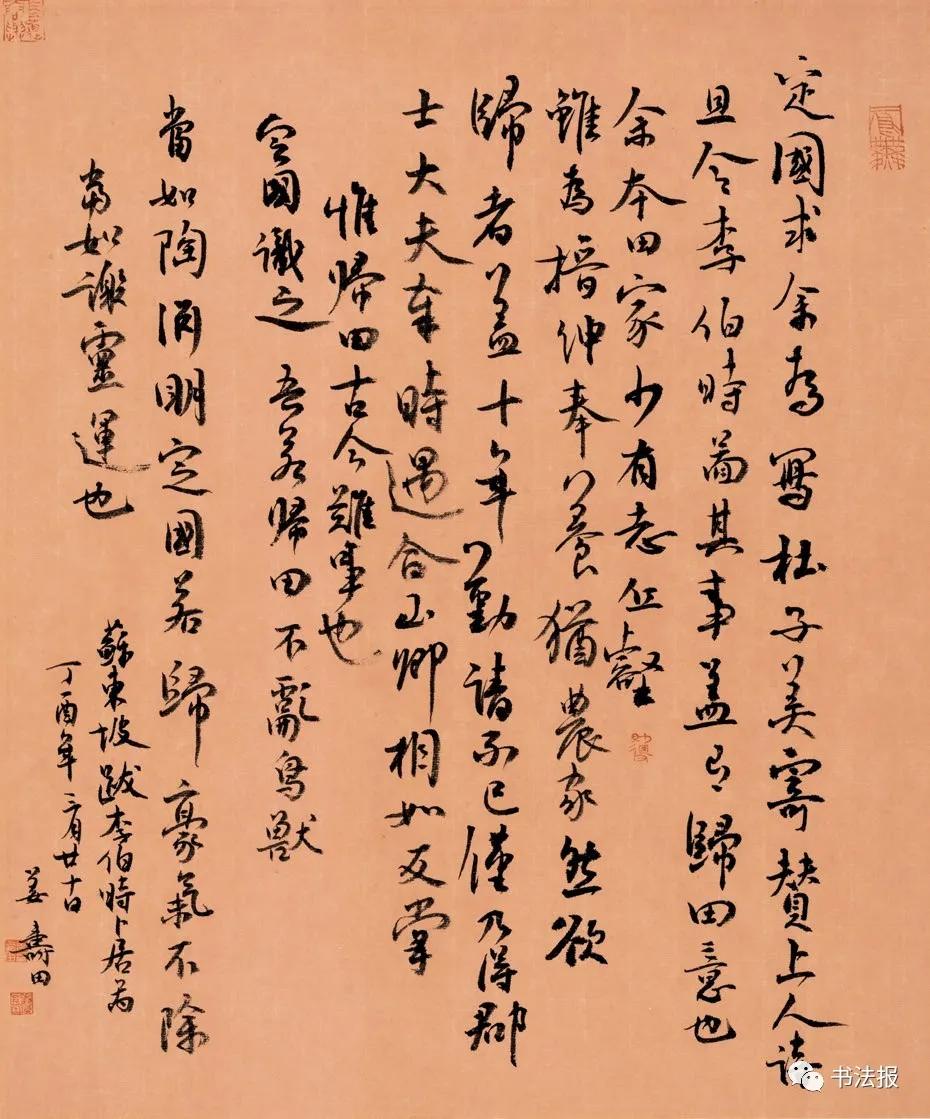 定國求余為寫杜子美寄贊上人詩
且令李伯時圖其事蓋有歸田意也
余本田家少有志丘壑
雖為搢紳奉養猶農家然欲
歸者蓋十年勤請不已僅乃得郡
士大夫逢時遇合至卿相如反掌
惟歸田古今難事也
定國識之吾若歸田不亂鳥獸
當如陶淵明定國若歸豪氣不除
當如謝靈運也
蘇東坡跋李伯時卜居圖
丁酉年二月廿十日
姜壽田
书法报